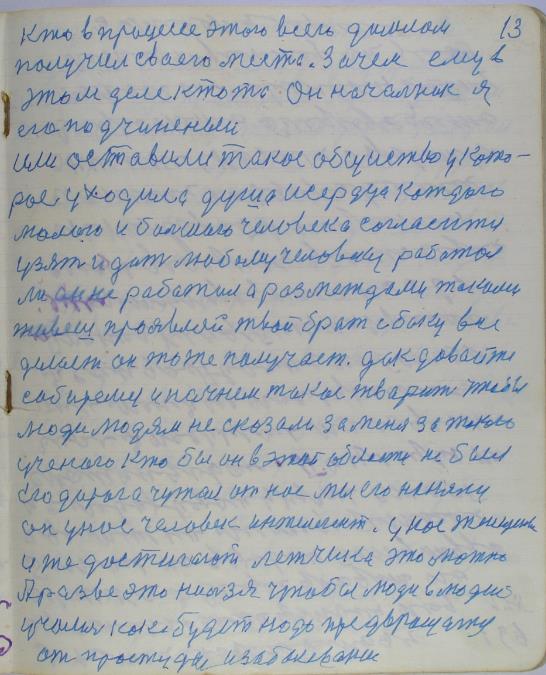 Кто в процесе этого всего дипллом 13
получил своего места. Зачем ему в
этом деле ктото. Он началник я
его подчиненыи
или оставили такое общиство у кото-
рое уходила душа и сердца каждого
малого и болшого человека согласити
узят и дат любому человеку работал
ли он не работал а раз между людми такими
живеш проявляй твой брат с боку все
делает он тоже получает. дак давайте
собиремся и начнем такое тварит чтобы
люди людям не сказали за меня за такого
ученого кто бы он в этой области не был
его дорога чужая от нас мы его наняли
он у нас человек интилегент. у нас женщина
уже достигают летчика это можно
А разве это нильзя чтобы люди в людях
учился как будет надо предвращат
от простуды и заболевани